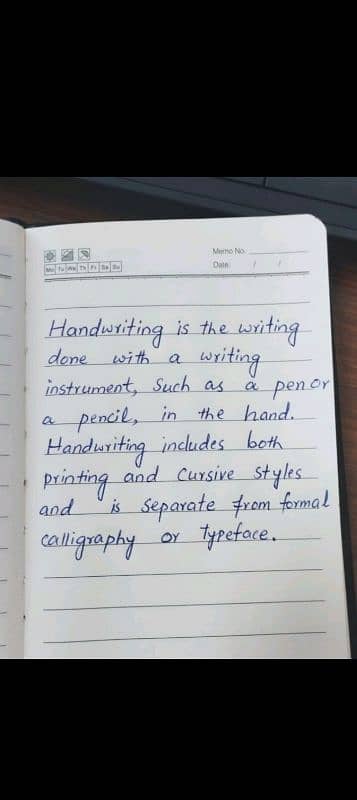 Memo No.
Mo Tu We Th Fr Sa Su
Date / /
Handwriting is the writing
done with a writing
instrument, Such as a pen or
a pencil, in the hand.
Handwriting includes both
printing and Cursive Styles
and is Separate from formal
calligraphy or typeface.